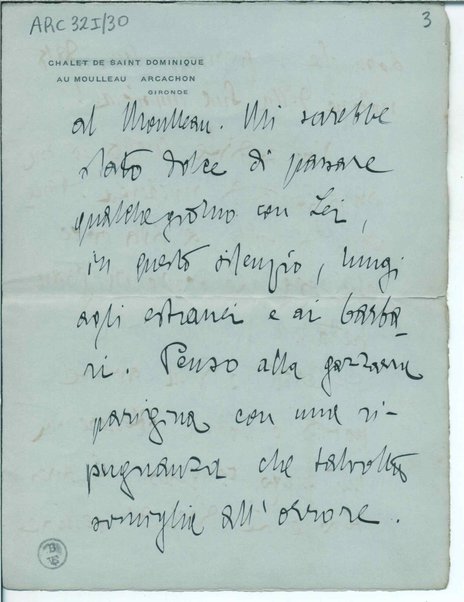 ARC 32 I/30
3
CHALET DE SAINT DOMINIQUE
AU MOULLEAU ARCACHON
GIRONDE
al Moulleau. Mi sarebbe
stato dolce di passare
qualche giorno con Lei,
in questo silenzio, lungi
agli estranei e ai barba-
ri. Penso alla gazzarra
parigina con una ri-
pugnanza che talvolta
somiglia all'orrore.